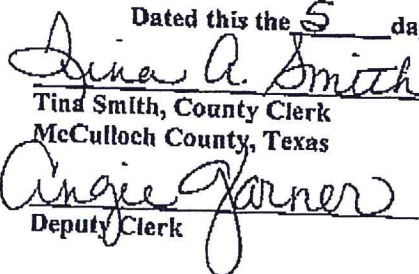 Dated this the 5 da
Tina A. Smith
Tina Smith, County Clerk
McCulloch County, Texas
Angie Garner
Deputy Clerk